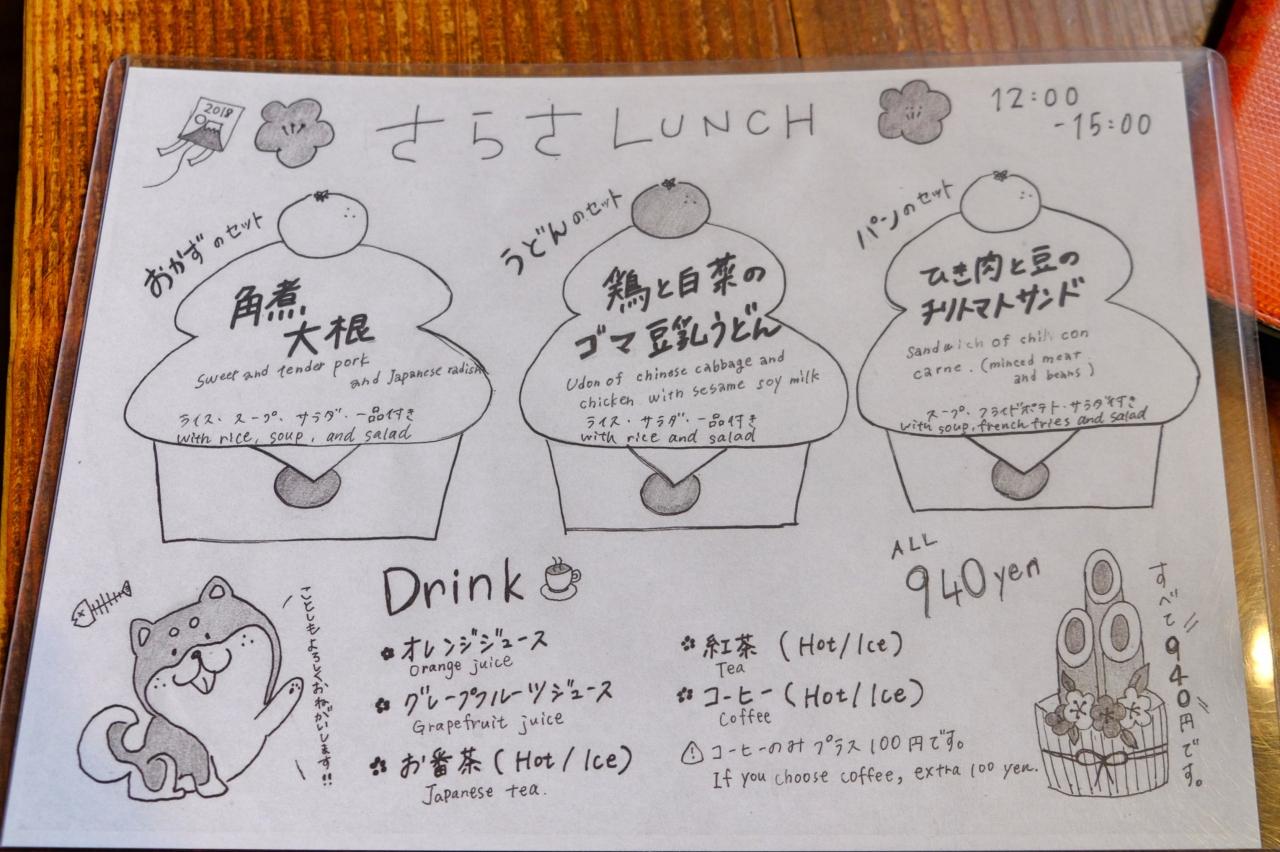 2018
さらさ LUNCH
12:00
-15:00
おかずのセット
角煮
大根
Sweet and tender pork
and Japanese radish
ライス・スープ・サラダ・一品付き
with rice, soup, and salad
うどんのセット
鶏と白菜の
ゴマ豆乳うどん
Udon of chinese cabbage and
chicken with sesame soy milk
ライス・サラダ・一品付き
with rice and salad
パンのセット
ひき肉と豆の
チリトマトサンド
Sandwich of chili con
carne. (minced meat
and beans)
スープ・フライドポテト・サラダ付き
with soup, french fries and salad
ALL
940 yen
すべて940円です。
ことしもよろしくおねがいします!!
Drink
オレンジジュース
Orange juice
グレープフルーツジュース
Grapefruit juice
お番茶 (Hot/Ice)
Japanese tea.
紅茶 (Hot/Ice)
Tea
コーヒー (Hot/Ice)
Coffee
コーヒーのみプラス100円です。
If you choose coffee, extra 100 yen.